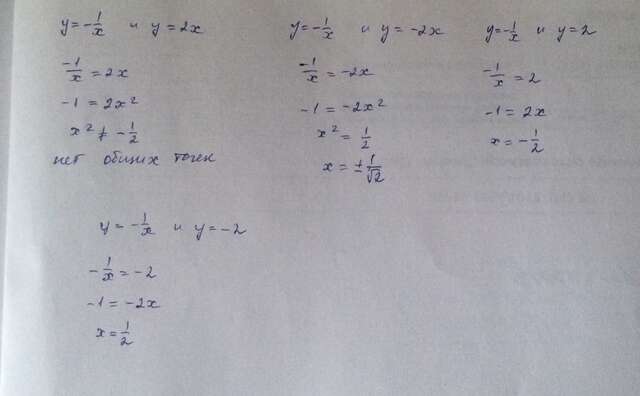 y = -1/x и y = 2x
-1/x = 2x
-1 = 2x²
x² ≠ -1/2
нет общих точек
y = -1/x и y = -2x
-1/x = -2x
-1 = -2x²
x² = 1/2
x = ± 1/√2
y = -1/x и y = 2
-1/x = 2
-1 = 2x
x = -1/2
y = -1/x и y = -2
-1/x = -2
-1 = -2x
x = 1/2